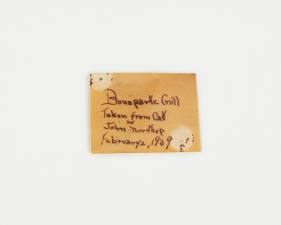 Bonaparte Gull
Taken from Cab
John Northop
February 2, 1909